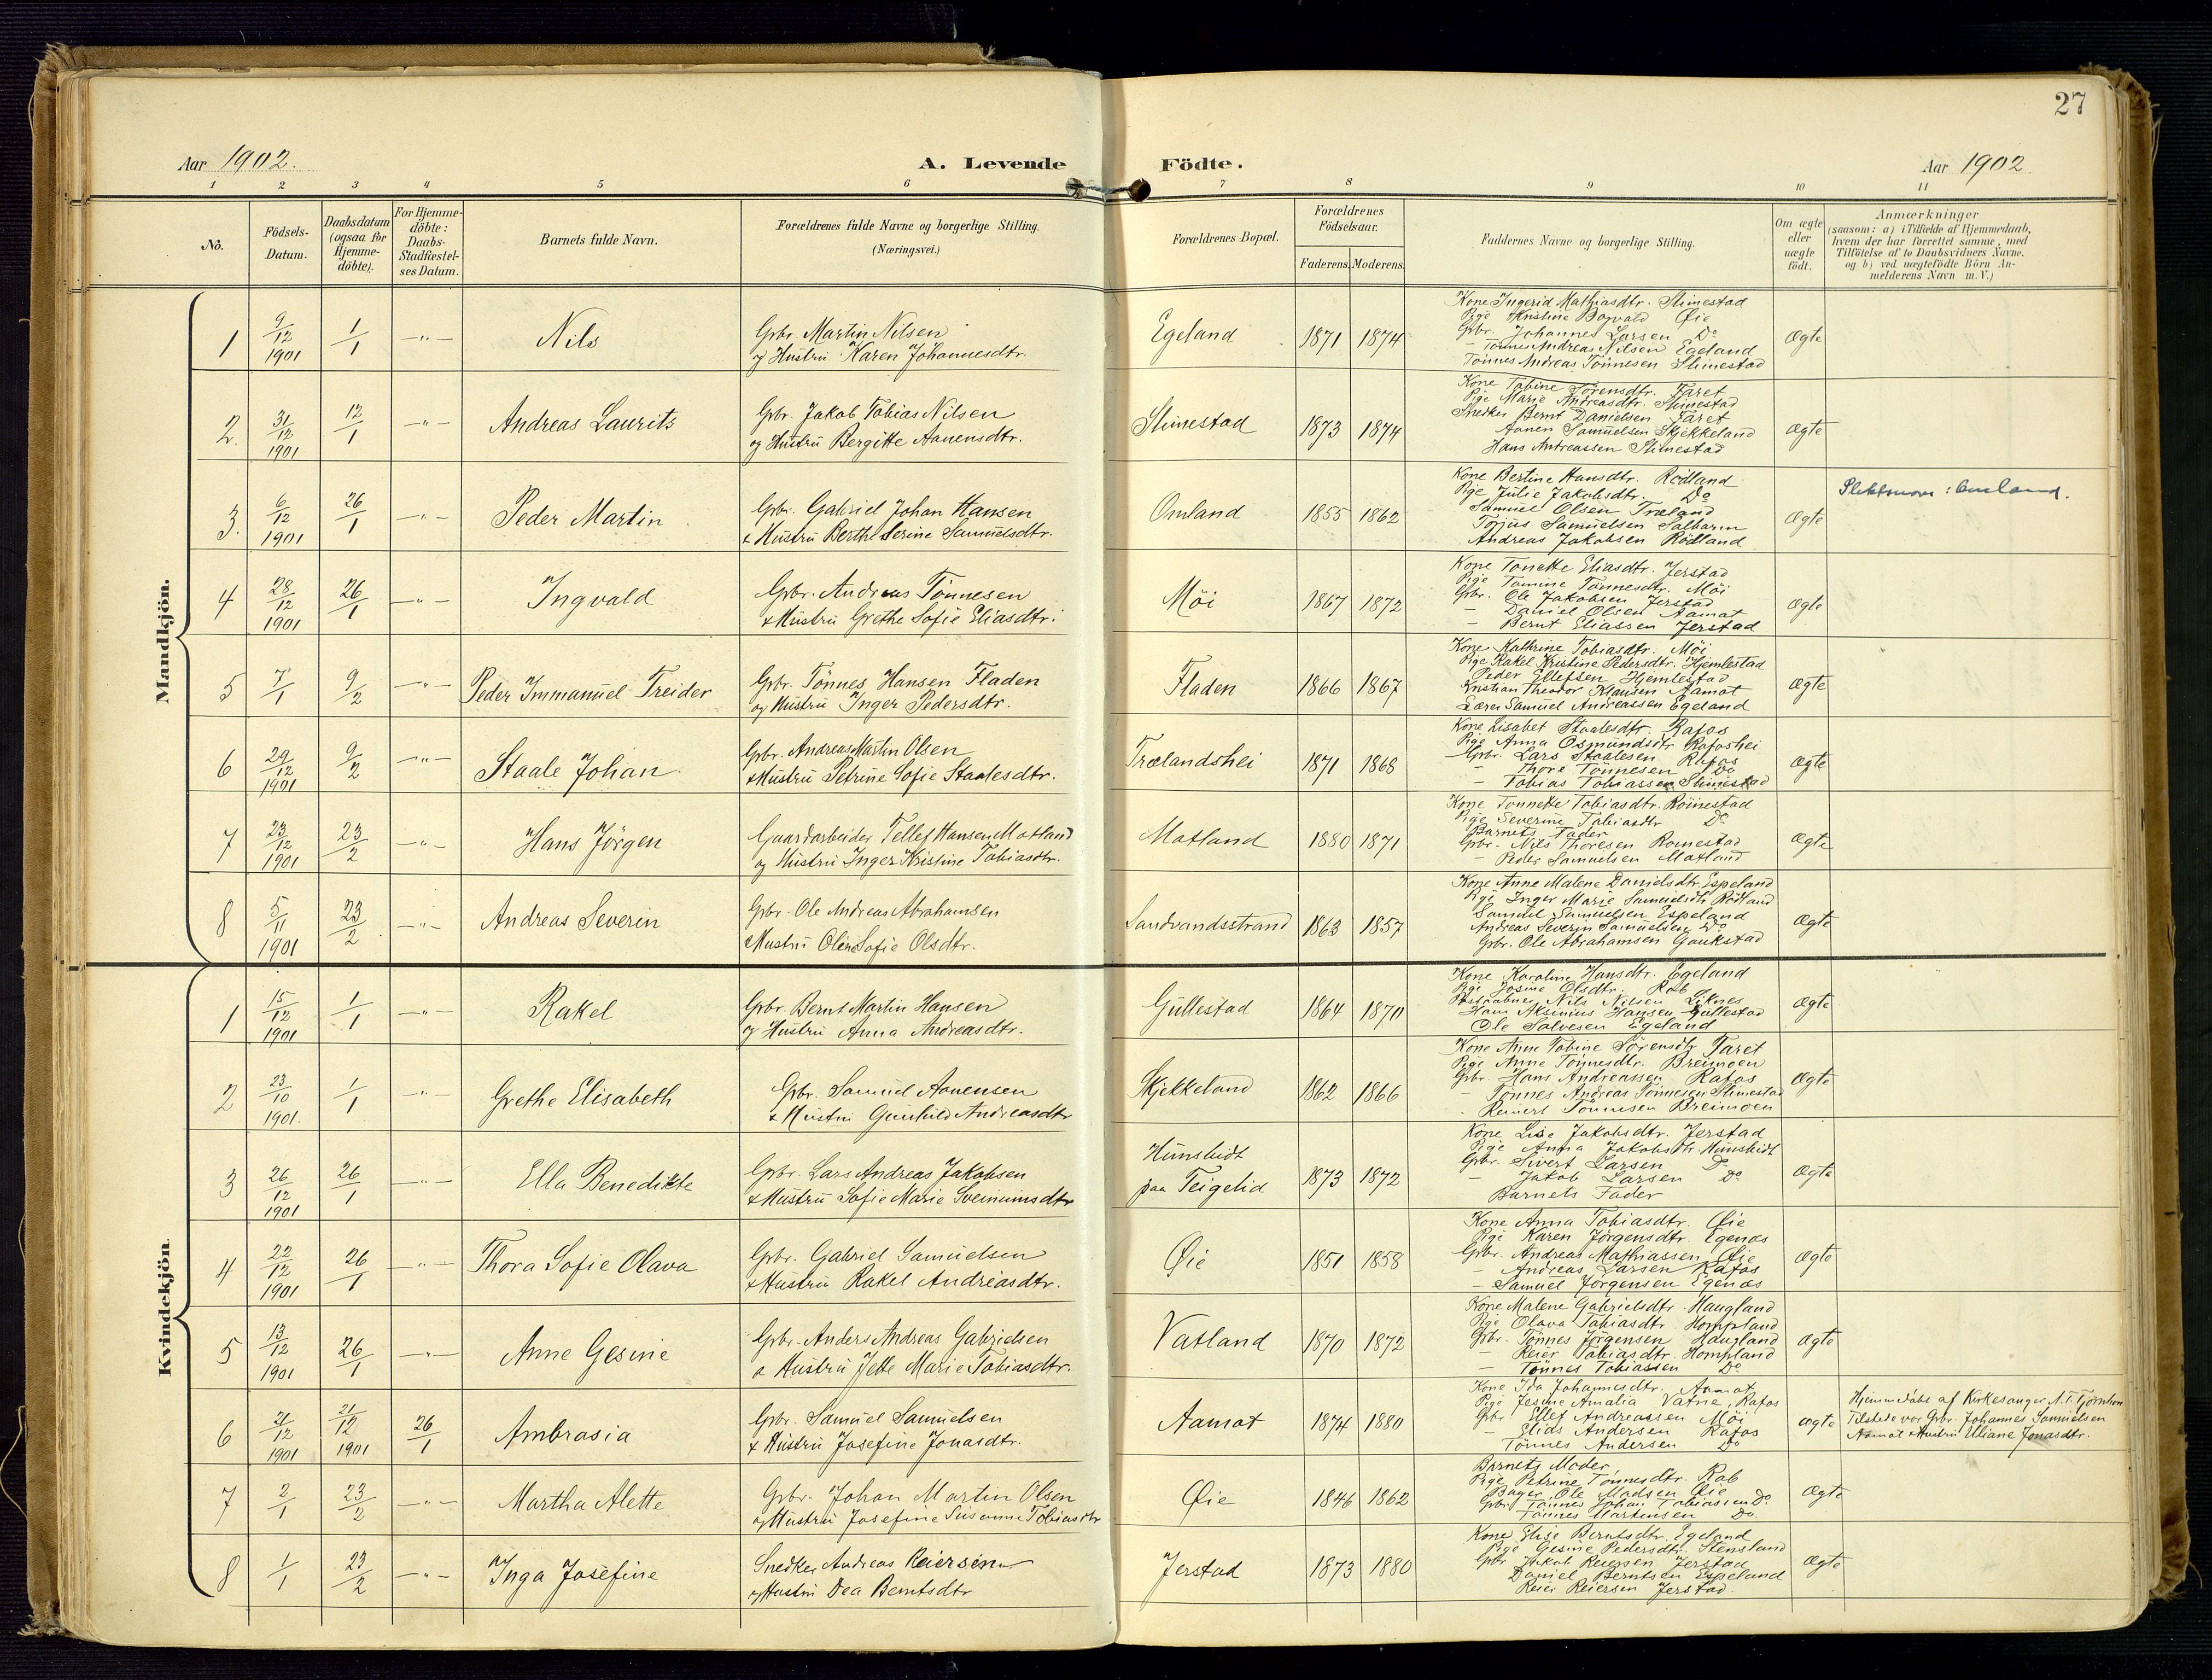 27
Aar 1902.
A. Levende Födte.
Aar 1902.
1 2 3 4 5 6 7 8 9 10 11
No.
Födsels-
Datum.
Daabsdatum
(ogsaa for
Hjemme-
döbte).
For Hjemme-
döbte:
Daabs-
Stadfæstel-
ses Datum.
Barnets fulde Navn.
Forældrenes fulde Navne og borgerlige Stilling.
(Næringsvei.)
Forældrenes Bopæl.
Forældrenes
Födselsaar.
Faderens. Moderens.
Faddernes Navne og borgerlige Stilling.
Om ægte
eller
uægte
födt.
Anmærkninger
(saasom: a) i Tilfælde af Hjemmedaab,
hvem der har forrettet samme, med
Tilföielse af to Daabsvidners Navne.
og b) ved uægtefödte Börn An-
melderens Navn m. V.)
Mandkjön.
1 9/12 1901 1/1 -"- Nils
Gbr. Martin Nilsen
og Hustru Karen Johannesdtr.
Egeland 1871 1874
Kone Ingerid Mathiasdtr. Slimestad
Pige Kristine Bogvald Øie
Gbr. Johannes Larsen Do
- Tønnes Andreas Nilsen Egeland
Tønnes Andreas Tønnesen Slimestad
Ægte
2. 31/12 1901 12/1 -"- Andreas Laurits
Gbr. Jakob Tobias Nilsen
og Hustru Bergitte Aanensdtr.
Slimestad 1873 1874
Kone Tobine Sørensdtr. Faret
Pige Marie Andreasdtr. Slimestad
Snedker Bernt Danielsen Faret
Aanen Samuelsen Skjekkeland
Hans Andreassen Slimestad
Ægte
3. 6/12 1901 26/1 -"- Peder Martin
Gbr. Gabriel Johan Hansen
& Hustru Berthe Serine Samuelsdtr.
Omland 1855 1862
Kone Bertine Hansdtr. Rødland
Pige Julie Jakobsdtr. Do
Samuel Olsen Træland
Tojus Samuelsen
Andreas Jakobsen Rødland
Ægte
Slektsnavn: Omland.
4 28/12 1901 26/1 -"- Ingvald
Gbr. Andreas Tønnesen
& Hustru Grethe Sofie Eliasdtr.
Möi 1867 1872
Kone Tonette Eliasdtr. Jerstad
Pige Tomine Tønnesdtr. Möi
Gbr. Ole Jakobsen Jerstad
- Daniel Olsen Aamot
- Bernt Eliassen Jerstad
Ægte
5 7/1 9/2 -"- Peder Immanuel Treider
Gbr. Tönnes Hansen Fladen
og Hustru Inger Pedersdtr.
Fladen 1866 1867
Kone Kathrine Tobiasdtr. Möi
Pige Rakel Kristine Pedersdtr. Hjemlestad
Peder Ellefsen Hjemlestad
Kristian Theodor Klausen Aamot
Lærer Samuel Andreassen Egeland
Ægte
6 29/12 1901 9/2 -"- Staale Johan
Gbr. Andreas Martin Olsen
& Hustru Petrine Sofie Staalesdtr.
Trælandshei 1871 1868
Kone Lisabet Staalesdtr. Rafos
Pige Anna Osmundsdtr Rafoshei
Gbr. Lars Staalesen Rafos
- Thore Tønnesen Do
- Tobias Tobiassen Slimestad
Ægte
7 23/12 1901 23/2 -"- Hans Jörgen
Gaardarbeider Tellef Hansen Matland
og Hustru Inger Kristine Tobiasdtr.
Matland 1880 1871
Kone Tonnette Tobiasdtr. Roinestad
Pige Severine Tobiasdtr Do
Barnets Fader
Gbr. Nils Thoresen Roinestad
- Peder Samuelsen Matland
Ægte
8 5/11 1901 23/2 -"- Andreas Severin
Gbr. Ole Andreas Abrahamsen
& Hustru Oline Sofie Olsdtr.
Sandvandsstrand 1863 1857
Kone Anne Malene Danielsdtr. Espeland
Pige Inger Marie Samuelsdtr Rødland
Samuel Samuelsen Espeland
Andreas Severin Samuelsen Do
Gbr. Ole Abrahamsen Gaukstad
Ægte
Kvindekjön.
1 15/12 1901 1/1 -"- Rakel
Gbr. Bernt Martin Hansen
og Hustru Anna Andreasdtr.
Gullestad 1864 1870
Kone Karoline Hansdtr. Egeland
Pige Josine Olsdtr. Rob
Postaabner Nils Nilsen Liknes
Hans Aksinius Hansen Gullestad
Ole Salvesen Egeland
Ægte
2 23/10 1901. 1/1 -"- Grethe Elisabeth
Gbr. Samuel Aanensen
& Hustru Gunhild Andreasdtr
Skjekkeland 1862 1866
Kone Anne Tobine Sørensdtr Faret
Pige Anne Tønnesdtr. Breimoen
Gbr. Hans Andreassen Rafos
- Tønnes Andreas Tønnesen Slimestad
Reinert Tønnesen Breimoen
Ægte
3 26/12 1901 26/1 -"- Ella Benedikte
Gbr. Lars Andreas Jakobsen
& Hustru Sofie Marie Sveinumsdtr
Hunsbidt
paa Teigelid 1873 1872
Kone Lise Jakobsdtr. Jerstad
Pige Anna Jakobsdtr. Hunsbidt
Gbr. Sivert Larsen Do
- Jakob Larsen Do
Barnets Fader
Ægte
4 22/12 1901 26/1 -"- Thora Sofie Olava
Gbr. Gabriel Samuelsen
& Hustru Rakel Andreasdtr.
Øie 1851 1858
Kone Anna Tobiasdtr. Øie
Pige Karen Jørgensdtr. Egenæs
Gbr. Andreas Mathiassen Øie
- Andreas Larsen Rafos
- Samuel Jørgensen Egenæs
Ægte
5 13/12 1901 26/1 -"- Anne Gesine
Gbr. Anders Andreas Gabrielsen
o Hustru Jette Marie Tobiasdtr.
Vatland 1870 1872
Kone Malene Gabrielsdtr. Haugland
Pige Olava Tobiasdtr. Hompland
Gbr. Tønnes Jørgensen Haugland
- Reier Tobiasdtr. Hompland
- Tønnes Tobiassen Do
Ægte
6 21/12 1901 21/12 1901 26/1 Ambrosia
Gbr. Samuel Samuelsen
& Hustru Josefine Jonasdtr.
Aamot 1874 1880
Kone Ida Johannesdtr. Aamot
Pige Jesine Amalia Vatne, Rafos
Gbr. Ellef Andreassen Möi
- Elias Andersen Rafos
Tønnes Andersen Do
ægte
Hjemmedøbt af Kirkesanger A. T. Tjørnhom
Tilstede var Gbr. Johannes Samuelsen
Aamot & Hustru Eliane Jonasdtr.
7 2/1 23/2 -"- Martha Alette
Gbr. Johan Martin Olsen
og Hustru Josefine Susanne Tobiasdtr
Øie 1846 1862
Barnets Moder
Pige Petrine Tønnesdtr. Rob
Bager Ole Madsen Øie
Gbr. Tønnes Johan Tobiassen Do.
Tønnes Martinsen Do.
Ægte
8 1/1 23/2 -"- Inga Josefine
Snedker Andreas Reiersen
og Hustru Dea Berntsdtr
Jerstad 1873 1880
Kone Elise Berntsdtr. Egeland
Pige Gesine Pedersdtr. Stensland
Gbr Jakob Reiersen Jerstad
Daniel Berntsen Espeland
Reier Reiersen Jerstad.
Ægte